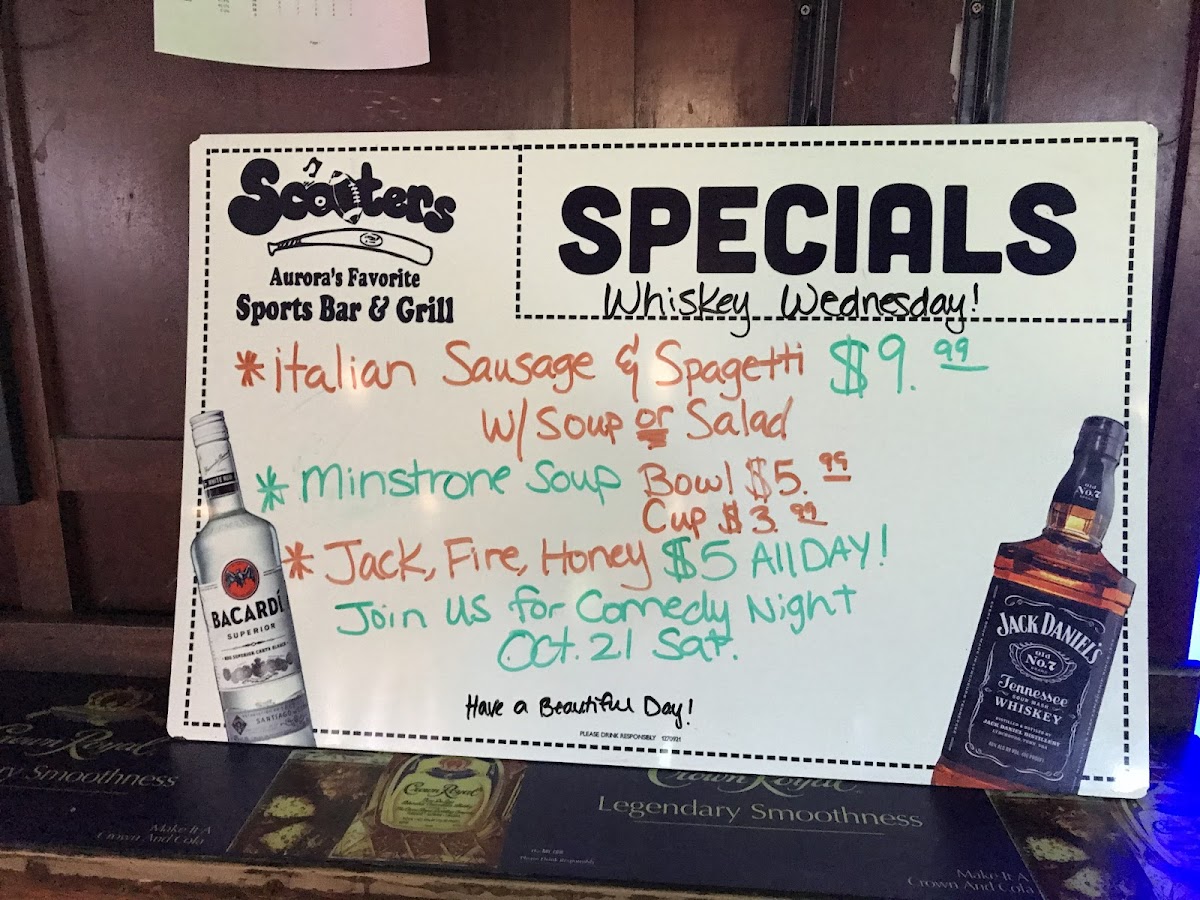 Scooters
Aurora's Favorite
Sports Bar & Grill
SPECIALS
Whiskey Wednesday!
*italian Sausage & Spagetti $9.99
w/ Soup or Salad
*Minstrone Soup Bowl $5.99
Cup $3.99
*Jack, Fire, Honey $5 All DAY!
Join us for Comedy Night
Oct. 21 Sat.
Have a Beautiful Day!
PLEASE DRINK RESPONSIBLY
BACARDÍ
SUPERIOR
SANTIAGO
Old
No.7
JACK DANIEL'S
Old
No.7
Tennessee
SOUR MASH
WHISKEY
Crown Royal
ry Smoothness
Make It A
Crown And Cola
Crown Royal
Crown Royal
Legendary Smoothness
Please Drink Responsibly
Make It A
Crown And Cola